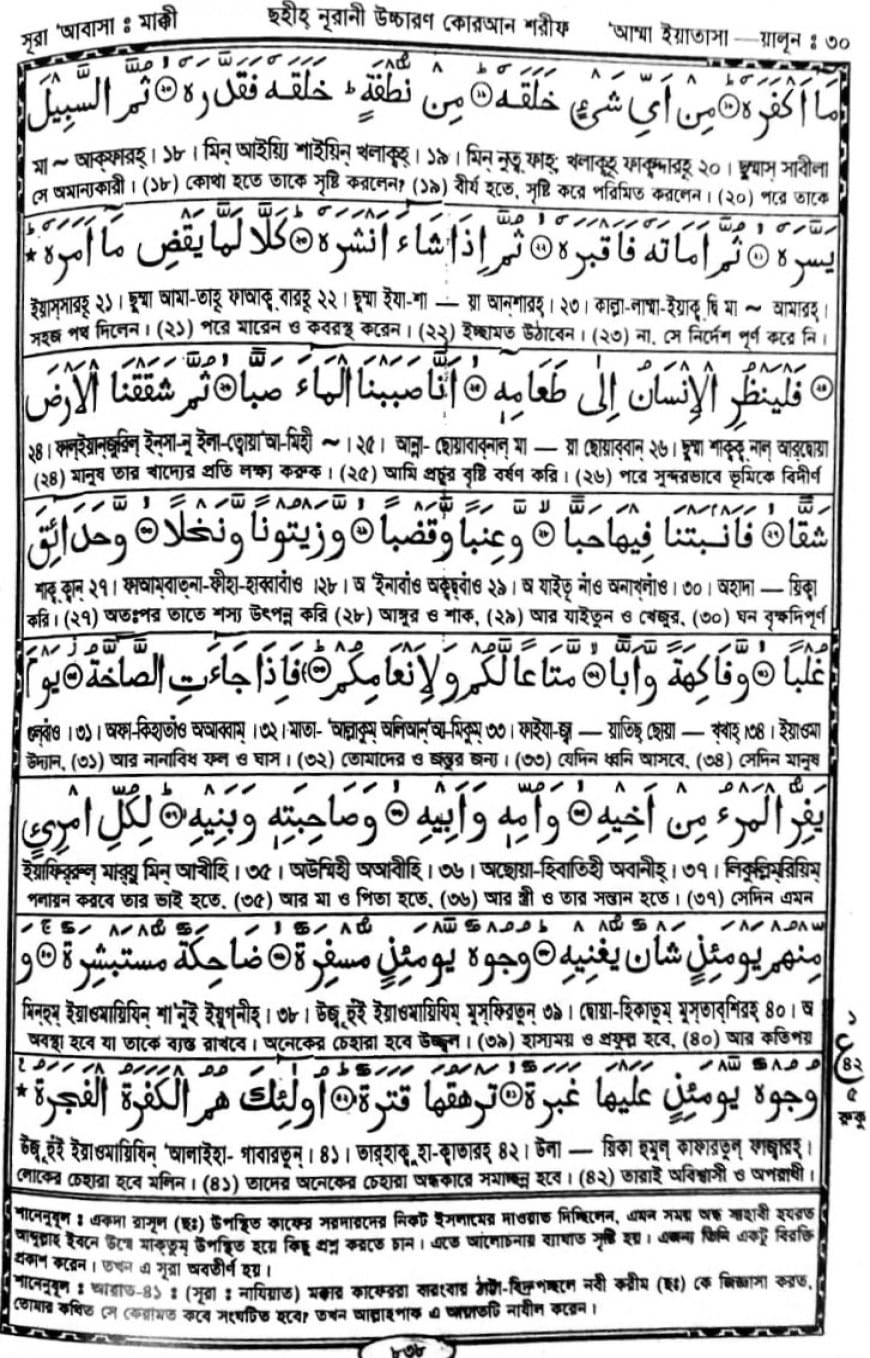 সূরা 'আবাসা : মাক্কী ছহীহ্ নূরানী উচ্চারণ কোরআন শরীফ 'আম্মা ইয়াতাসা —য়ালূন : ৩০
مَا أَكْفَرَهُ ⑰ مِنْ أَيِّ شَيْءٍ خَلَقَهُ ⑱ مِنْ نُطْفَةٍ ط خَلَقَهُ فَقَدَّرَهُ ⑲ ثُمَّ السَّبِيلَ
মা ~ আক্ফারহ্। ১৮। মিন্ আইয়্যি শাইয়িন্ খলাক্বহ্। ১৯। মিন্ নুত্ব্ ফাহ্; খলাক্বহূ ফাক্বদ্দারহূ ২০। ছুম্মাস্ সাবীলা
সে অমান্যকারী। (১৮) কোথা হতে তাকে সৃষ্টি করলেন? (১৯) বীর্য হতে, সৃষ্টি করে পরিমিত করলেন। (২০) পরে তাকে
يَسَّرَهُ ⑳ ثُمَّ أَمَاتَهُ فَأَقْبَرَهُ ㉑ ثُمَّ إِذَا شَاءَ أَنْشَرَهُ ㉒ كَلَّا لَمَّا يَقْضِ مَا أَمَرَهُ ★
ইয়াস্সারহূ ২১। ছুম্মা আমা-তাহূ ফাআক্ব্ বারহূ ২২। ছুম্মা ইযা-শা — য়া আন্শারহ্। ২৩। কাল্লা-লাম্মা-ইয়াক্ব্ দ্বি মা ~ আমারহ্।
সহজ পথ দিলেন। (২১) পরে মারেন ও কবরস্থ করেন। (২২) ইচ্ছামত উঠাবেন। (২৩) না, সে নির্দেশ পূর্ণ করে নি।
فَلْيَنْظُرِ الْإِنْسَانُ إِلَى طَعَامِهِ ㉔ أَنَّا صَبَبْنَا الْمَاءَ صَبًّا ㉕ ثُمَّ شَقَقْنَا الْأَرْضَ
২৪। ফাল্ইয়ানজুরিল্ ইন্সা-নু ইলা-ত্বোয়া'আ-মিহী ~ । ২৫। আন্না- ছোয়াবাব্নাল্ মা — য়া ছোয়াব্বান্ ২৬। ছুম্মা শাক্বক্ব্ নাল্ আর্দ্বোয়া
(২৪) মানুষ তার খাদ্যের প্রতি লক্ষ্য করুক। (২৫) আমি প্রচুর বৃষ্টি বর্ষণ করি। (২৬) পরে সুন্দরভাবে ভূমিকে বিদীর্ণ
شَقًّا ㉖ فَأَنْبَتْنَا فِيهَا حَبًّا ㉗ وَعِنَبًا وَقَضْبًا ㉘ وَزَيْتُونًا وَنَخْلًا ㉙ وَحَدَائِقَ
শাক্ব্ ক্বান্ ২৭। ফাআম্বাত্না-ফীহা-হাব্বাঁও ।২৮। অ 'ইনাবাঁও অক্বদ্ব্বাঁও ২৯। অ যাইতূ নাঁও অনাখ্লাঁও। ৩০। অহাদা — য়িক্ব
করি। (২৭) অতঃপর তাতে শস্য উৎপন্ন করি (২৮) আঙ্গুর ও শাক, (২৯) আর যাইতুন ও খেজুর, (৩০) ঘন বৃক্ষদিপূর্ণ
غُلْبًا ㉚ وَفَاكِهَةً وَأَبًّا ㉛ مَتَاعًا لَكُمْ وَلِأَنْعَامِكُمْ ㉜ فَإِذَا جَاءَتِ الصَّاخَّةُ ㉝ يَوْمَ
গুল্বাঁও ।৩১। অফা-কিহাতাঁও অআব্বাম্ ।৩২। মাতা- 'আল্লাকুম্ অলিআন্'আ-মিকুম্ ৩৩। ফাইযা-জ্বা — য়াতিছ্ ছোয়া — খ্খাহ্ ।৩৪। ইয়াওমা
উদ্যান, (৩১) আর নানাবিধ ফল ও ঘাস। (৩২) তোমাদের ও জন্তুর জন্য। (৩৩) যেদিন ধ্বনি আসবে, (৩৪) সেদিন মানুষ
يَفِرُّ الْمَرْءُ مِنْ أَخِيهِ ㉞ وَأُمِّهِ وَأَبِيهِ ㉟ وَصَاحِبَتِهِ وَبَنِيهِ ㊱ لِكُلِّ امْرِئٍ
ইয়াফির্রুল্ মার্য়ু মিন্ আখীহি। ৩৫। অউম্মিহী অআবীহি। ৩৬। অছোয়া-হিবাতিহী অবানীহ্। ৩৭। লিকুল্লিম্রিয়িম্
পলায়ন করবে তার ভাই হতে, (৩৫) আর মা ও পিতা হতে, (৩৬) আর স্ত্রী ও তার সন্তান হতে। (৩৭) সেদিন এমন
مِنْهُمْ يَوْمَئِذٍ شَأْنٌ يُغْنِيهِ ㊲ وُجُوهٌ يَوْمَئِذٍ مُسْفِرَةٌ ㊳ ضَاحِكَةٌ مُسْتَبْشِرَةٌ ㊴ وَ
মিন্হুম্ ইয়াওমায়িযিন্ শা'নুঁই ইয়ুগ্নীহ্। ৩৮। উজূ হুঁই ইয়াওমায়িযিম্ মুস্ফিরতুন্ ৩৯। দ্বোয়া-হিকাতুম্ মুস্তাব্শিরহ্ ৪০। অ
অবস্থা হবে যা তাকে ব্যস্ত রাখবে। অনেকের চেহারা হবে উজ্জ্বল। (৩৯) হাস্যময় ও প্রফুল্ল হবে, (৪০) আর কতিপয়
وُجُوهٌ يَوْمَئِذٍ عَلَيْهَا غَبَرَةٌ ㊵ تَرْهَقُهَا قَتَرَةٌ ㊶ أُولَئِكَ هُمُ الْكَفَرَةُ الْفَجَرَةُ ★
উজূ হুঁই ইয়াওমায়িযিন্ 'আলাইহা- গাবারতুন্। ৪১। তার্হাক্বু হা-ক্বাতারহ্ ৪২। উলা — য়িকা হুমুল্ কাফারতুল্ ফাজ্বারহ্।
লোকের চেহারা হবে মলিন। (৪১) তাদের অনেকের চেহারা অন্ধকারে সমাচ্ছন্ন হবে। (৪২) তারাই অবিশ্বাসী ও অপরাধী।
১
ع
৪২
৫
রুকূ
শানেনুযূল : একদা রাসূল (ছঃ) উপস্থিত কাফের সরদারদের নিকট ইসলামের দাওয়াত দিচ্ছিলেন, এমন সময় অন্ধ সাহাবী হযরত
আব্দুল্লাহ ইবনে উম্মে মাকতুম্ উপস্থিত হয়ে কিছু প্রশ্ন করতে চান। এতে আলোচনায় ব্যাঘাত সৃষ্টি হয়। এজন্য তিনি একটু বিরক্তি
প্রকাশ করেন। তখন এ সূরা অবতীর্ণ হয়।
শানেনুযূল : আয়াত-৪১ : (সূরা : নাযিয়াত) মক্কার কাফেররা বারংবার ঠাট্টা-বিদ্রূপচ্ছলে নবী করীম (ছঃ) কে জিজ্ঞাসা করত,
তোমার কথিত সে কেয়ামত কবে সংঘটিত হবে? তখন আল্লাহপাক এ আয়াতটি নাযীল করেন।
৮৩৮